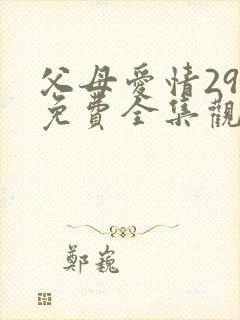 父母愛情29
免費全集觀
鄭巍